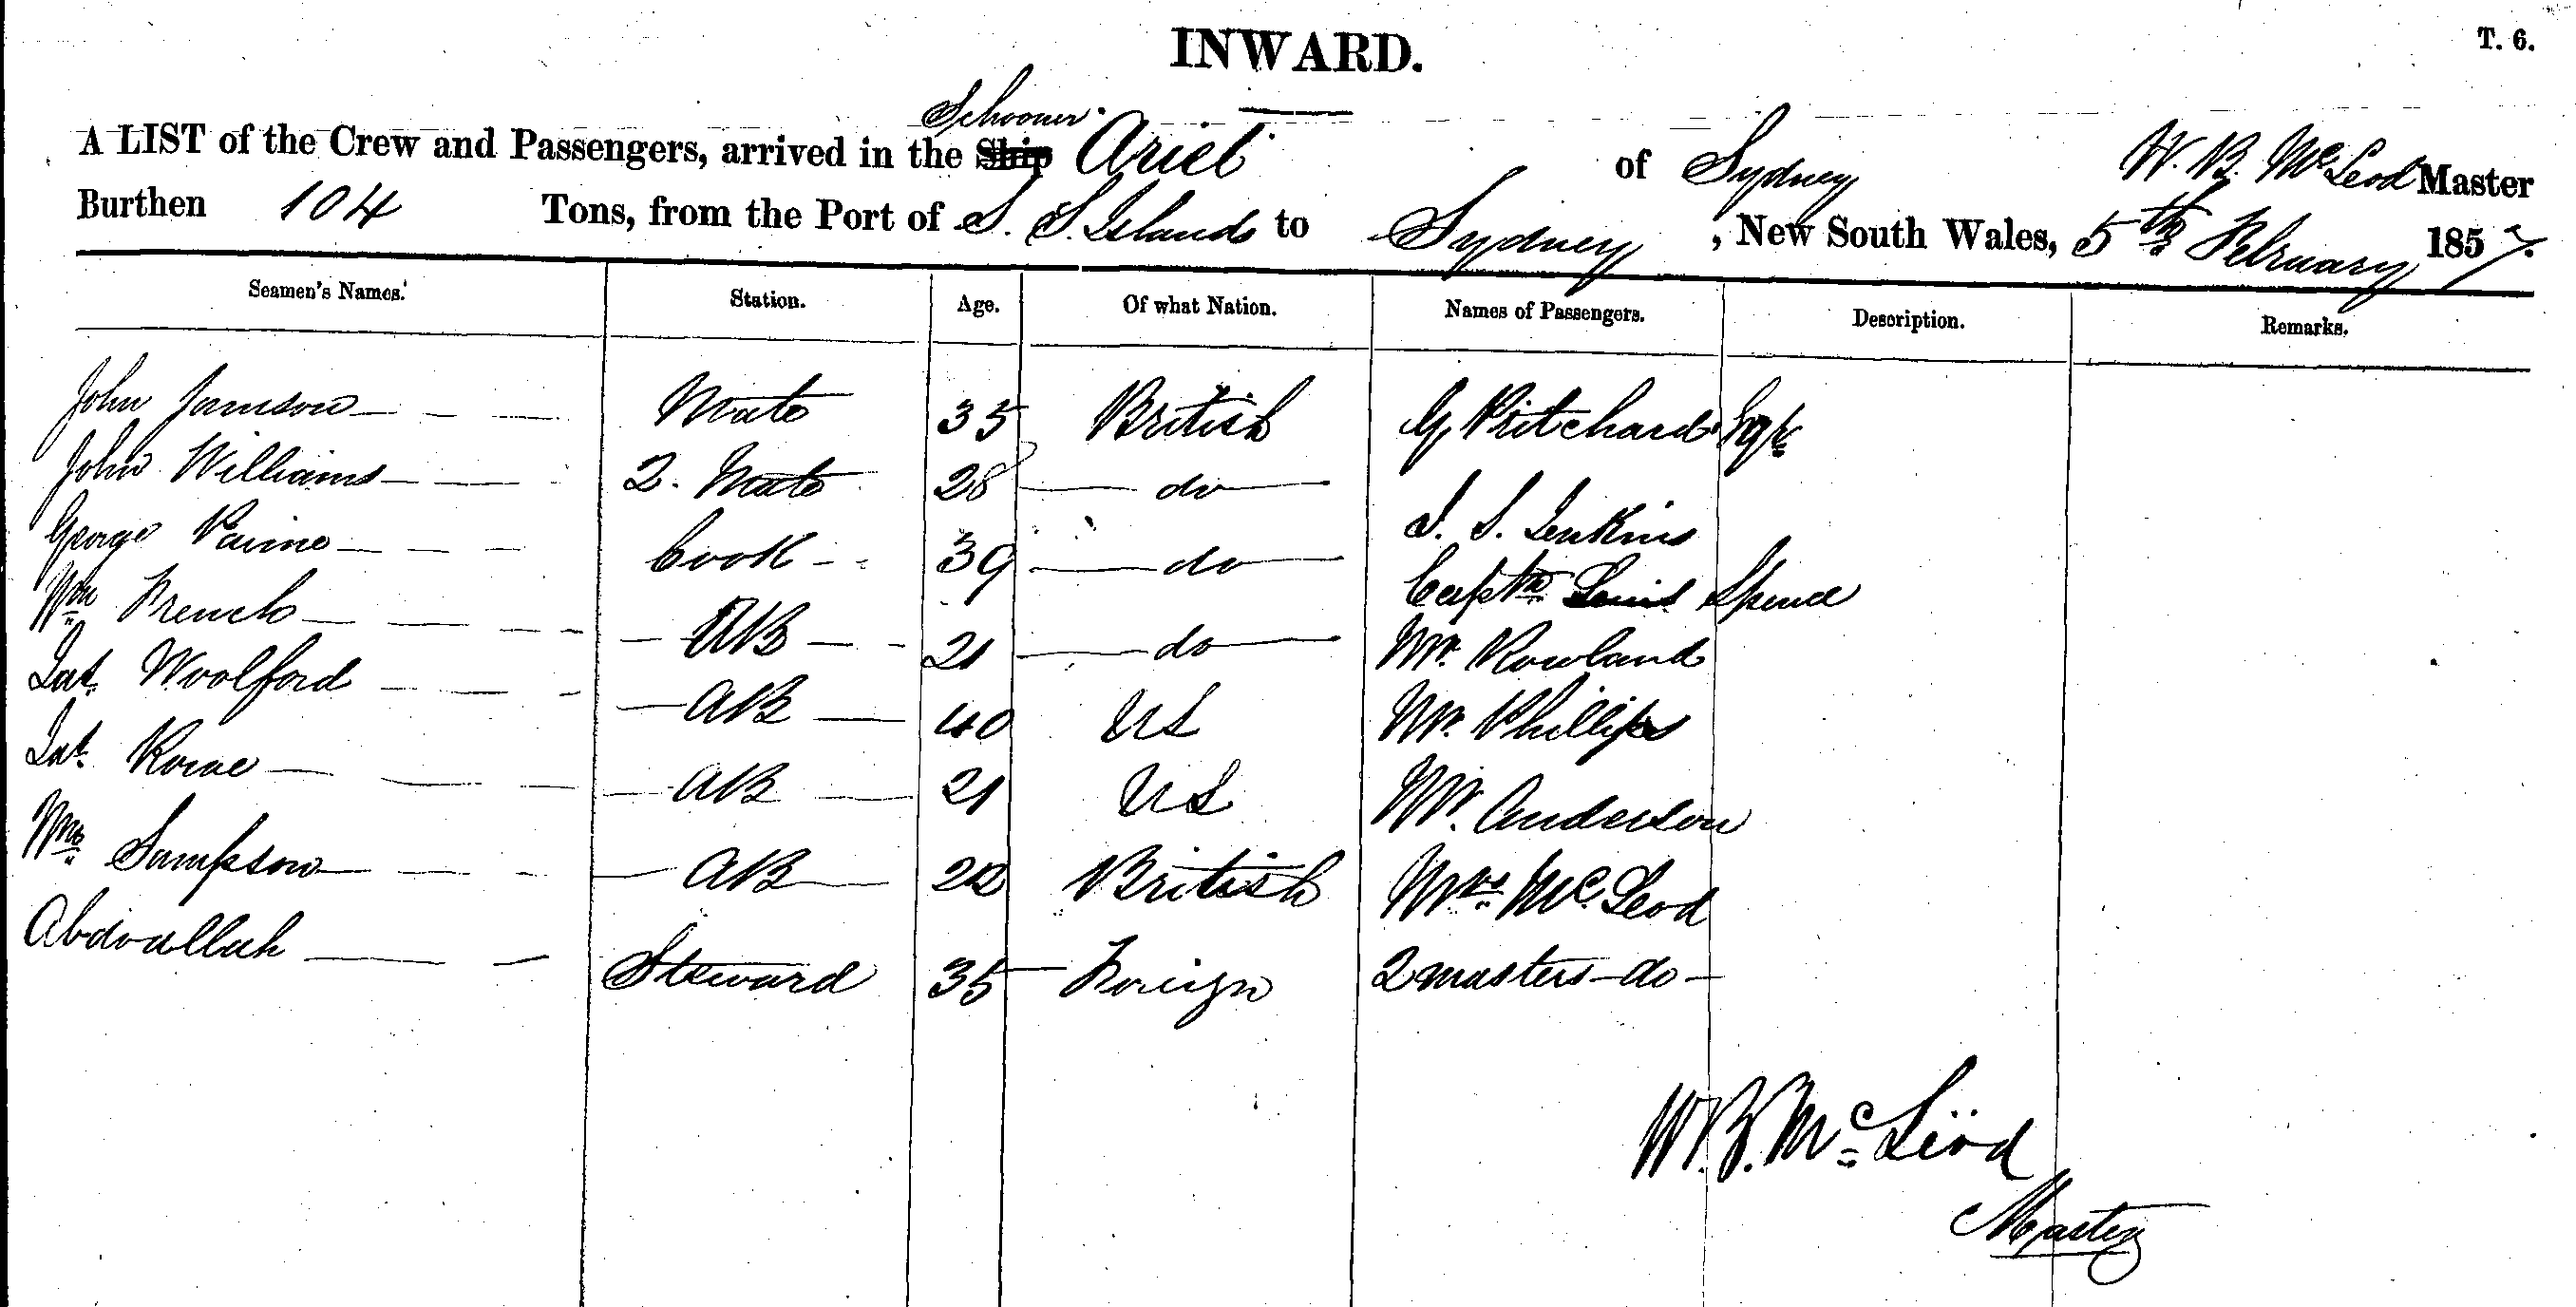 INWARD.
T. 6.
Schooner
A LIST of the Crew and Passengers, arrived in the Ship Ariel of Sydney W. B. McLeod Master
Burthen 104 Tons, from the Port of S. S. Islands to Sydney, New South Wales, 5th February 1857.
Seamen's Names. Station. Age. Of what Nation. Names of Passengers. Description. Remarks.
John Jamson Mate 35 British G Pritchard Esqr
John Williams 2. Mate 28 do
George Paine Cook 39 do S. S. Jenkins
Wm French AB 21 do Captn Spence
Jas. Woolford AB 40 US Mr. Rowland
Jas. Rowe AB 21 US Mr. Phillips
Wm Sampson AB 22 British Mr. Anderson
Abdoallah Steward 35 Foreign Mrs. McLeod
2 masters do
W. B. McLeod
Master